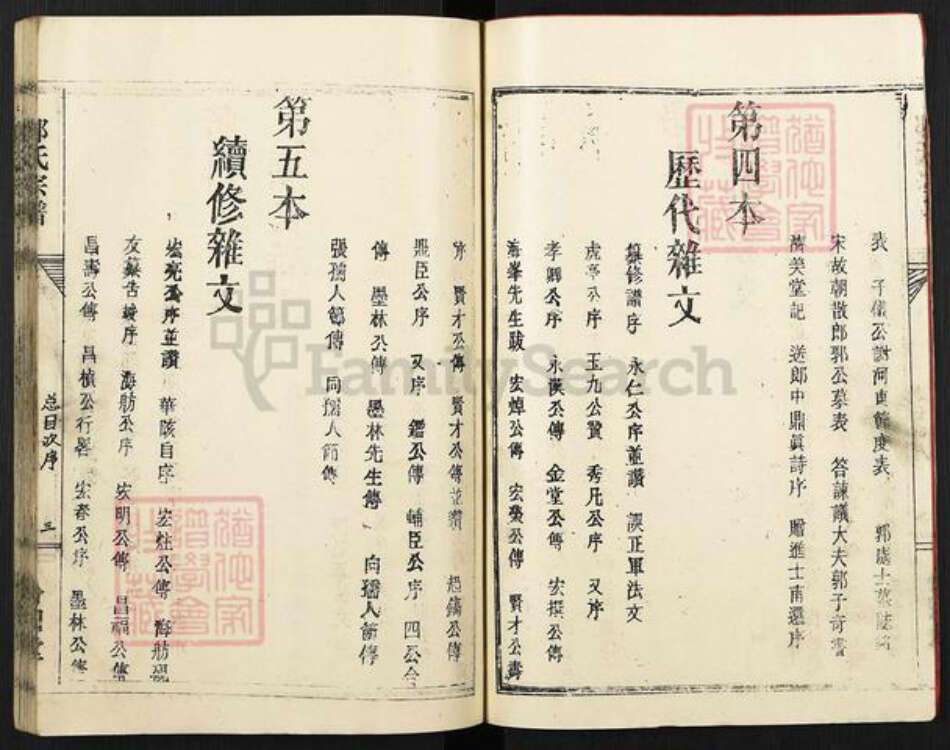 第四本
歷代雜文
子儀公謝河東節度表
宋故朝散郎郭公墓表 答諫議大夫郭子奇書
濟美堂記 送郎中鼎眞詩序 贈進士南還序
纂修譜序 永仁公序並讚 誤正軍法文
虎亭公序 玉九公贊 秀凡公序 又序
孝卿公序 永漢公傳 金堂公傳 宏撰公傳
海峯先生跋 宏焯公傳 宏公傳 賢才公壽
序 賢才公傳 賢才公傳並讚 公傳
鼎臣公序 又序 鑑公傳 輔臣公序 四公合
傳 墨林公傳 墨林先生傳 向孺人節傳
張孺人節傳 向孺人節傳
第五本
續修雜文
宏亮公序並讚 華陔自序 宏柱公傳 海舫
友蘇告竣序 海舫公序 宏明公傳 昌福公傳
昌壽公傳 昌楨公行畧 宏孝公序 墨林公傳
氏宗譜
总目次序
三
FamilySearch